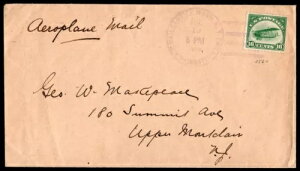 Aeroplane Mail
6 PM
U.S. POSTAGE
16 CENTS 16
Geo. W. Masterpeace
180 Summit Ave
Upper Montclair
N.J.